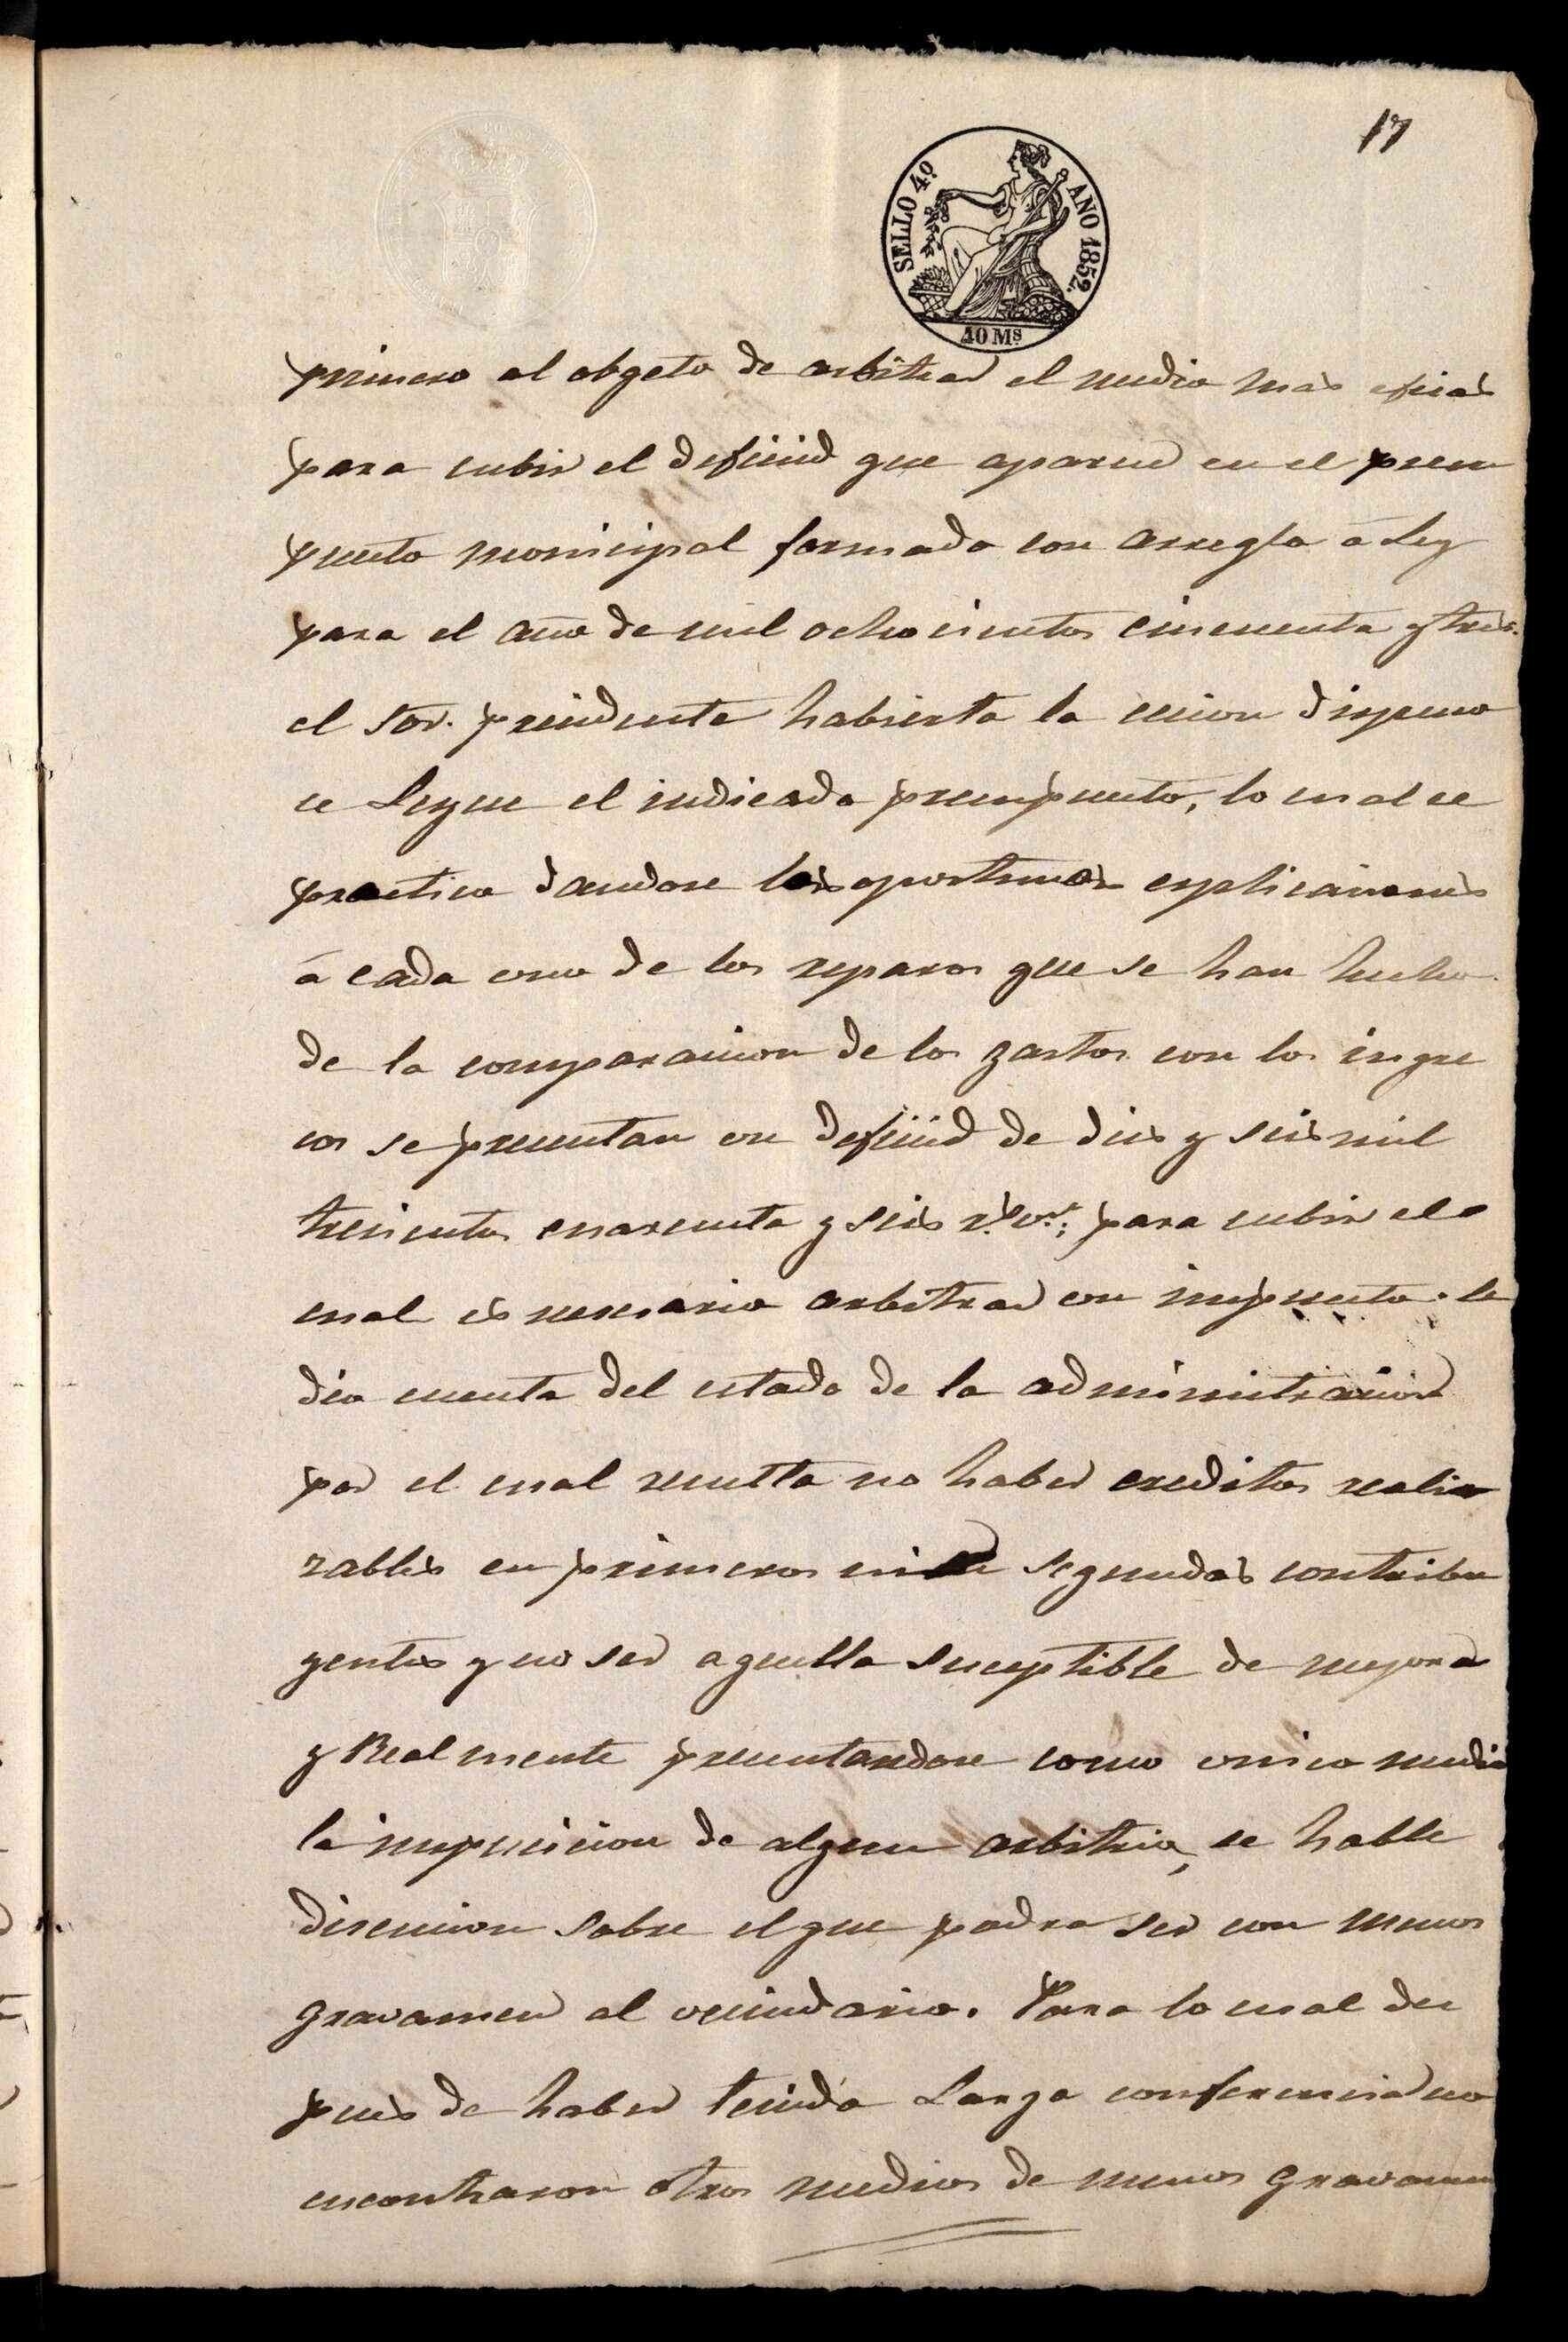 17
SELLO 4º AÑO 1852.
40 Ms
primero al obgeto de arbitrar el medio mas eficas
para cubrir el deficid que aparece en el presu
puesto monicipal formado con arreglo a Ley
para el año de mil ochocientos cincuenta y tres.
el Sor. presidente habierta la cecion dispuso
se Leyese el indicado presupuesto, lo cual se
practico dandose las oportunas esplicaciones
á cada uno de los reparos que se han hecho.
de la comparacion de los gastos con los ingre
sos se presentan un deficid de dies y seis mil
trecientos cuarenta y seis rs. vn.; para cubrir el
cual es necesario arbitrar un impuesto. se
dio cuenta del estado de la administracion
por el cual resulta no haber creditos reali
zables en primeros ni segundos contribu
yentes y no ser aquella suceptible de mejora
y Realmente presentandose como unico medio
la imposicion de algun arbitrio, se hable
discucion sobre el que podra ser con menos
gravamen al vecindario. Para lo cual des
pues de haber tenido Larga conferencia no
encontraron otros medios de menos gravamen